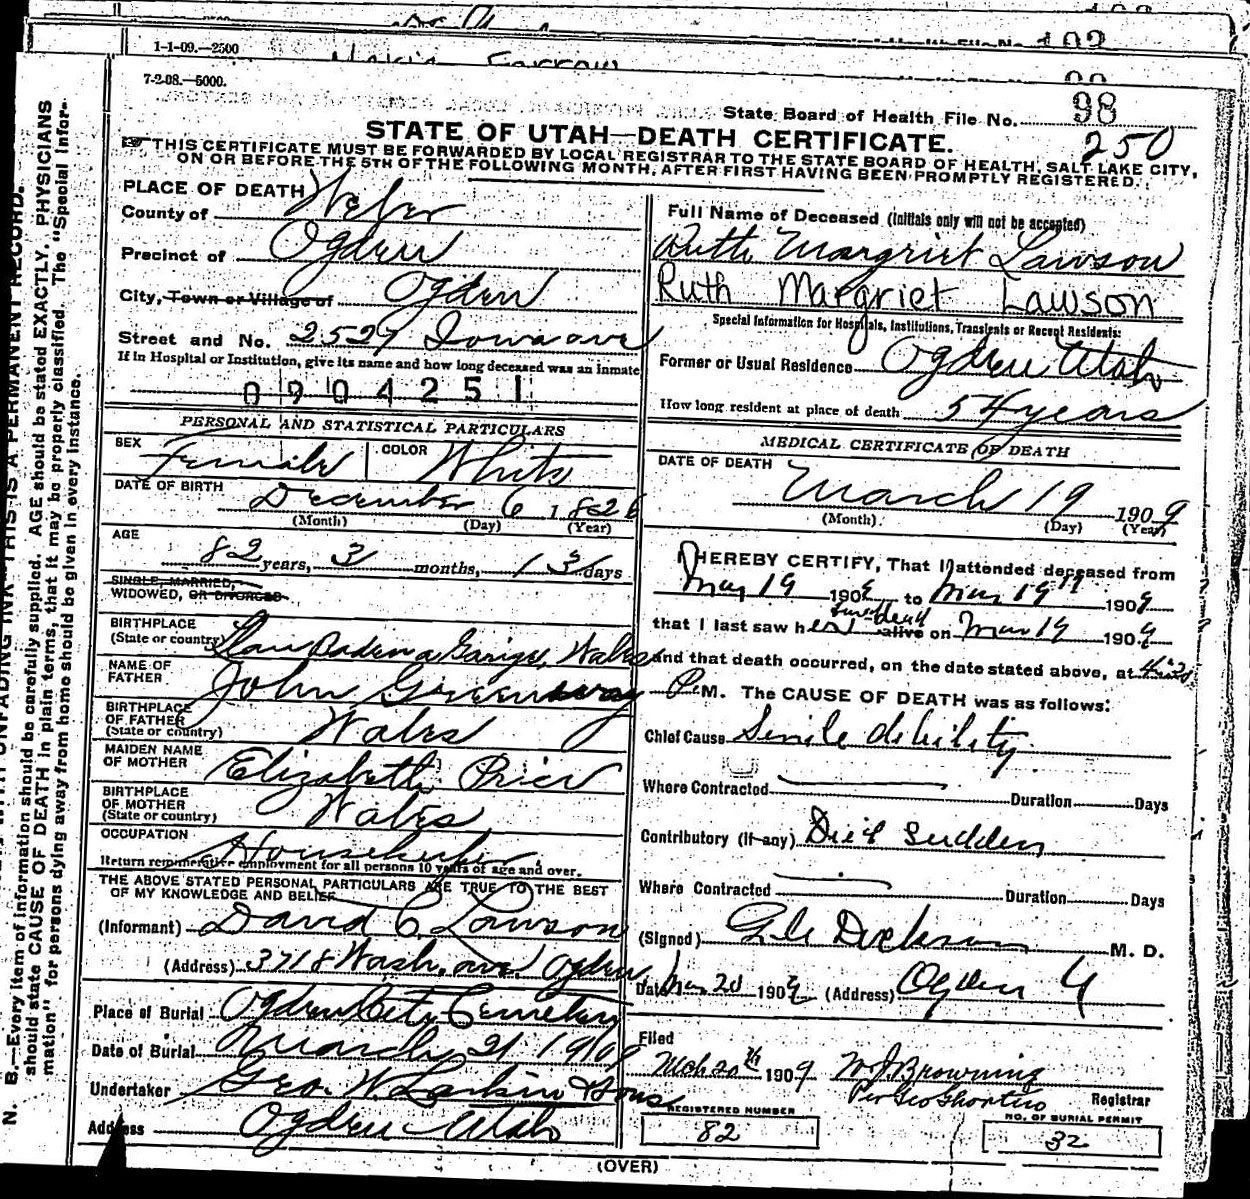 1-1-09.—2500
7-2-08.—5000.
State Board of Health File No. 98
250
STATE OF UTAH—DEATH CERTIFICATE.
THIS CERTIFICATE MUST BE FORWARDED BY LOCAL REGISTRAR TO THE STATE BOARD OF HEALTH, SALT LAKE CITY,
ON OR BEFORE THE 5TH OF THE FOLLOWING MONTH, AFTER FIRST HAVING BEEN PROMPTLY REGISTERED.
PLACE OF DEATH
County of Weber
Precinct of Ogden
City, Town or Village of Ogden
Street and No. 2527 Iowa ave
If in Hospital or Institution, give its name and how long deceased was an inmate
0904251
PERSONAL AND STATISTICAL PARTICULARS
SEX Female COLOR White
DATE OF BIRTH December 6 1826
(Month) (Day) (Year)
AGE
82 years, 3 months, 13 days
SINGLE, MARRIED,
WIDOWED, OR DIVORCED
BIRTHPLACE
(State or country) Wales
NAME OF
FATHER John Greenway
BIRTHPLACE
OF FATHER
(State or country) Wales
MAIDEN NAME
OF MOTHER Elizabeth Price
BIRTHPLACE
OF MOTHER
(State or country) Wales
OCCUPATION Housekeeper
Return remunerative employment for all persons 10 years of age and over.
THE ABOVE STATED PERSONAL PARTICULARS ARE TRUE TO THE BEST
OF MY KNOWLEDGE AND BELIEF
(Informant) David C. Lawson
(Address) 3718 Wash. ave Ogden
Place of Burial Ogden City Cemetery
Date of Burial March 21 1909
Undertaker Geo. W. Larkin & Sons
Address Ogden Utah
Full Name of Deceased (Initials only will not be accepted)
Ruth Margriet Lawson
Ruth Margriet Lawson
Special Information for Hospitals, Institutions, Transients or Recent Residents:
Former or Usual Residence Ogden Utah
How long resident at place of death 54 years
MEDICAL CERTIFICATE OF DEATH
DATE OF DEATH
March 19 1909
(Month) (Day) (Year)
I HEREBY CERTIFY, That I attended deceased from
Mar 19 1909 to Mar 19th 1909
that I last saw her alive on Mar 19 1909
and that death occurred, on the date stated above, at
P. M. The CAUSE OF DEATH was as follows:
Chief Cause Senile debility
Where Contracted Duration Days
Contributory (if any) Died Sudden
Where Contracted Duration Days
(Signed) M. D.
Date Mar 20 1909 (Address) Ogden U
Filed
Mch 20th 1909 W J Browning
Registrar
REGISTERED NUMBER
82
NO. OF BURIAL PERMIT
32
(OVER)
N. B.—Every item of information should be carefully supplied. AGE should be stated EXACTLY. PHYSICIANS
should state CAUSE OF DEATH in plain terms, that it may be properly classified. The "Special Infor-
mation" for persons dying away from home should be given in every instance.